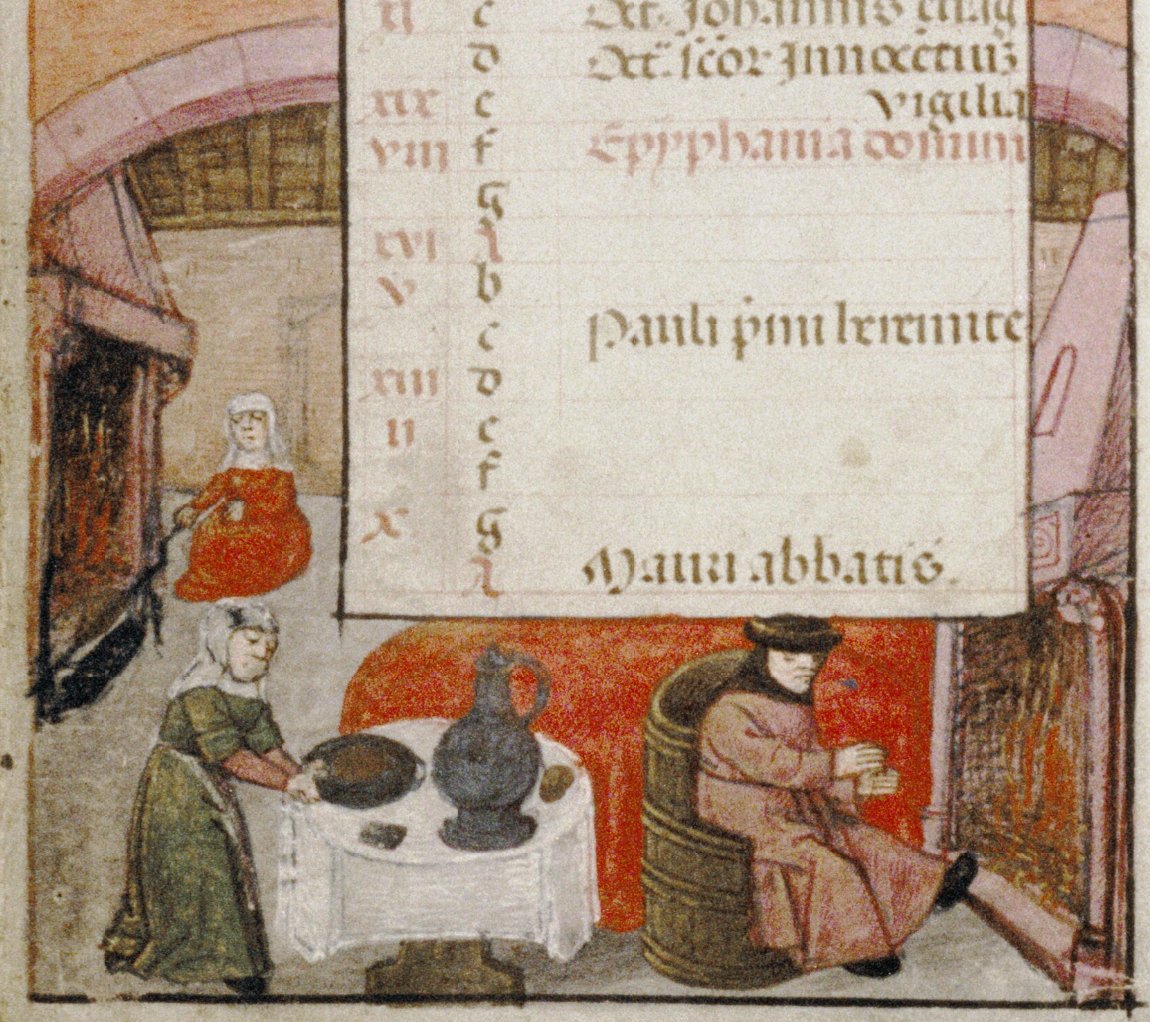 xi c Oct. Johannis euāg
d Oct. scōr Innocētiūȝ
xix e vigilia
viii f Epyphania domini
g
xvi A
v b
c Pauli p̄mi heremite
xiii d
ii e
f
x g
A Mauri abbatis.